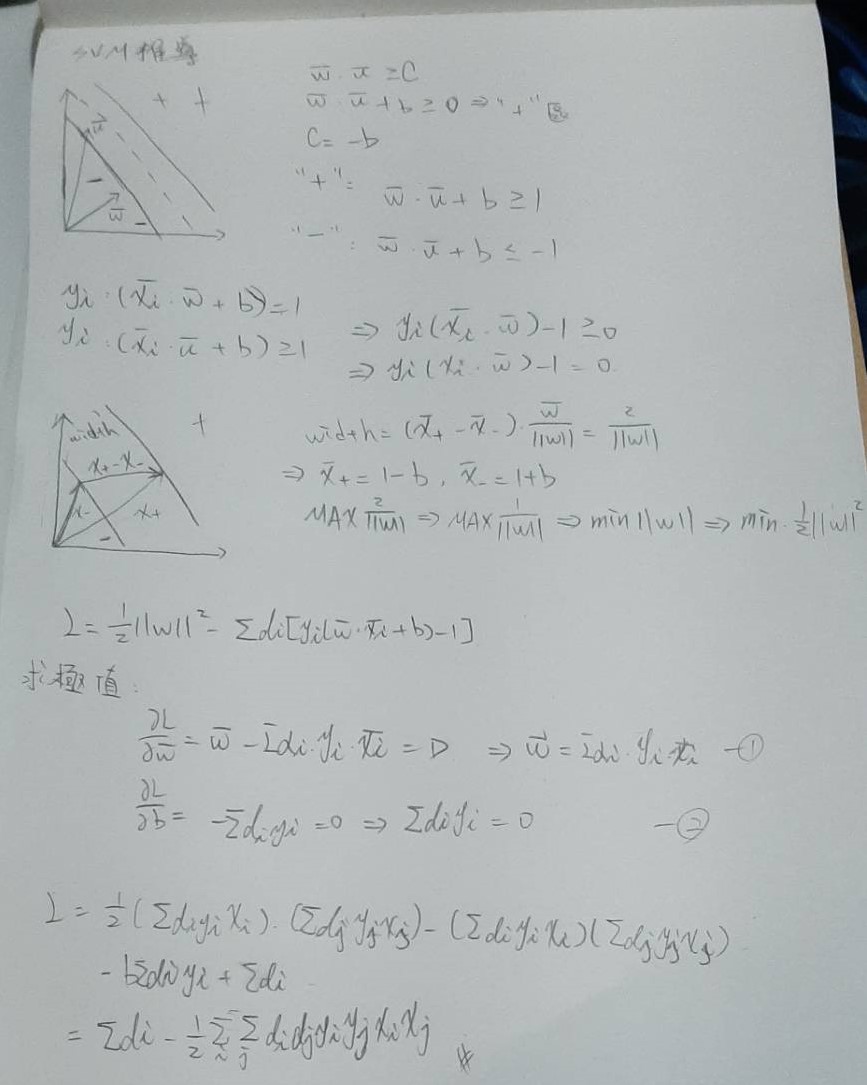 SVM推導
w̄ · ū ≥ C
w̄ · ū + b ≥ 0 ⇒ "+"
C = -b
"+" :
w̄ · ū + b ≥ 1
"-" : w̄ · ū + b ≤ -1
+ +
ū
-
w̄
-
yi · (x̄i · w̄ + b) = 1
yi · (x̄i · ū + b) ≥ 1
⇒ yi(x̄i · w̄) - 1 ≥ 0
⇒ yi(xi · w̄) - 1 = 0
width
+
x+ - x-
x-
x+
-
width = (x̄+ - x̄-) · w̄/||w|| = 2/||w||
⇒ x̄+ = 1 - b , x̄- = 1 + b
MAX 2/||w|| ⇒ MAX 1/||w|| ⇒ min ||w|| ⇒ min · 1/2 ||w||²
L = 1/2 ||w||² - Σdi[yi(w̄ · x̄i + b) - 1]
求極值 :
∂L/∂w̄ = w̄ - Σdi · yi · x̄i = 0 ⇒ w̄ = Σdi · yi · xi -①
∂L/∂b = -Σdiyi = 0 ⇒ Σdiyi = 0 -②
L = 1/2 (Σdiyixi) · (Σdjyjxj) - (Σdiyixi)(Σdjyjxj)
- bΣdiyi + Σdi
= Σdi - 1/2 Σi Σj didjyiyjxixj #